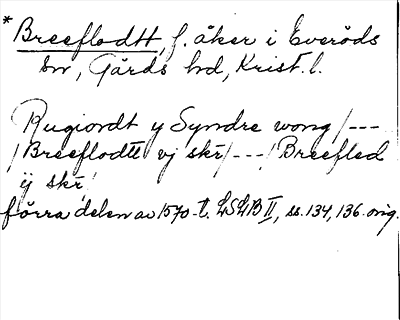 * Breeflodtt, f. åker i Everöds
sn, Gärds hd, Krist. l.
Rugiordt y Syndre wong /---
/ Breeflodtt vj skr /---/ Breefled
ij skr /
förra delen av 1570-t. LSLB II, ss. 134, 136. orig.